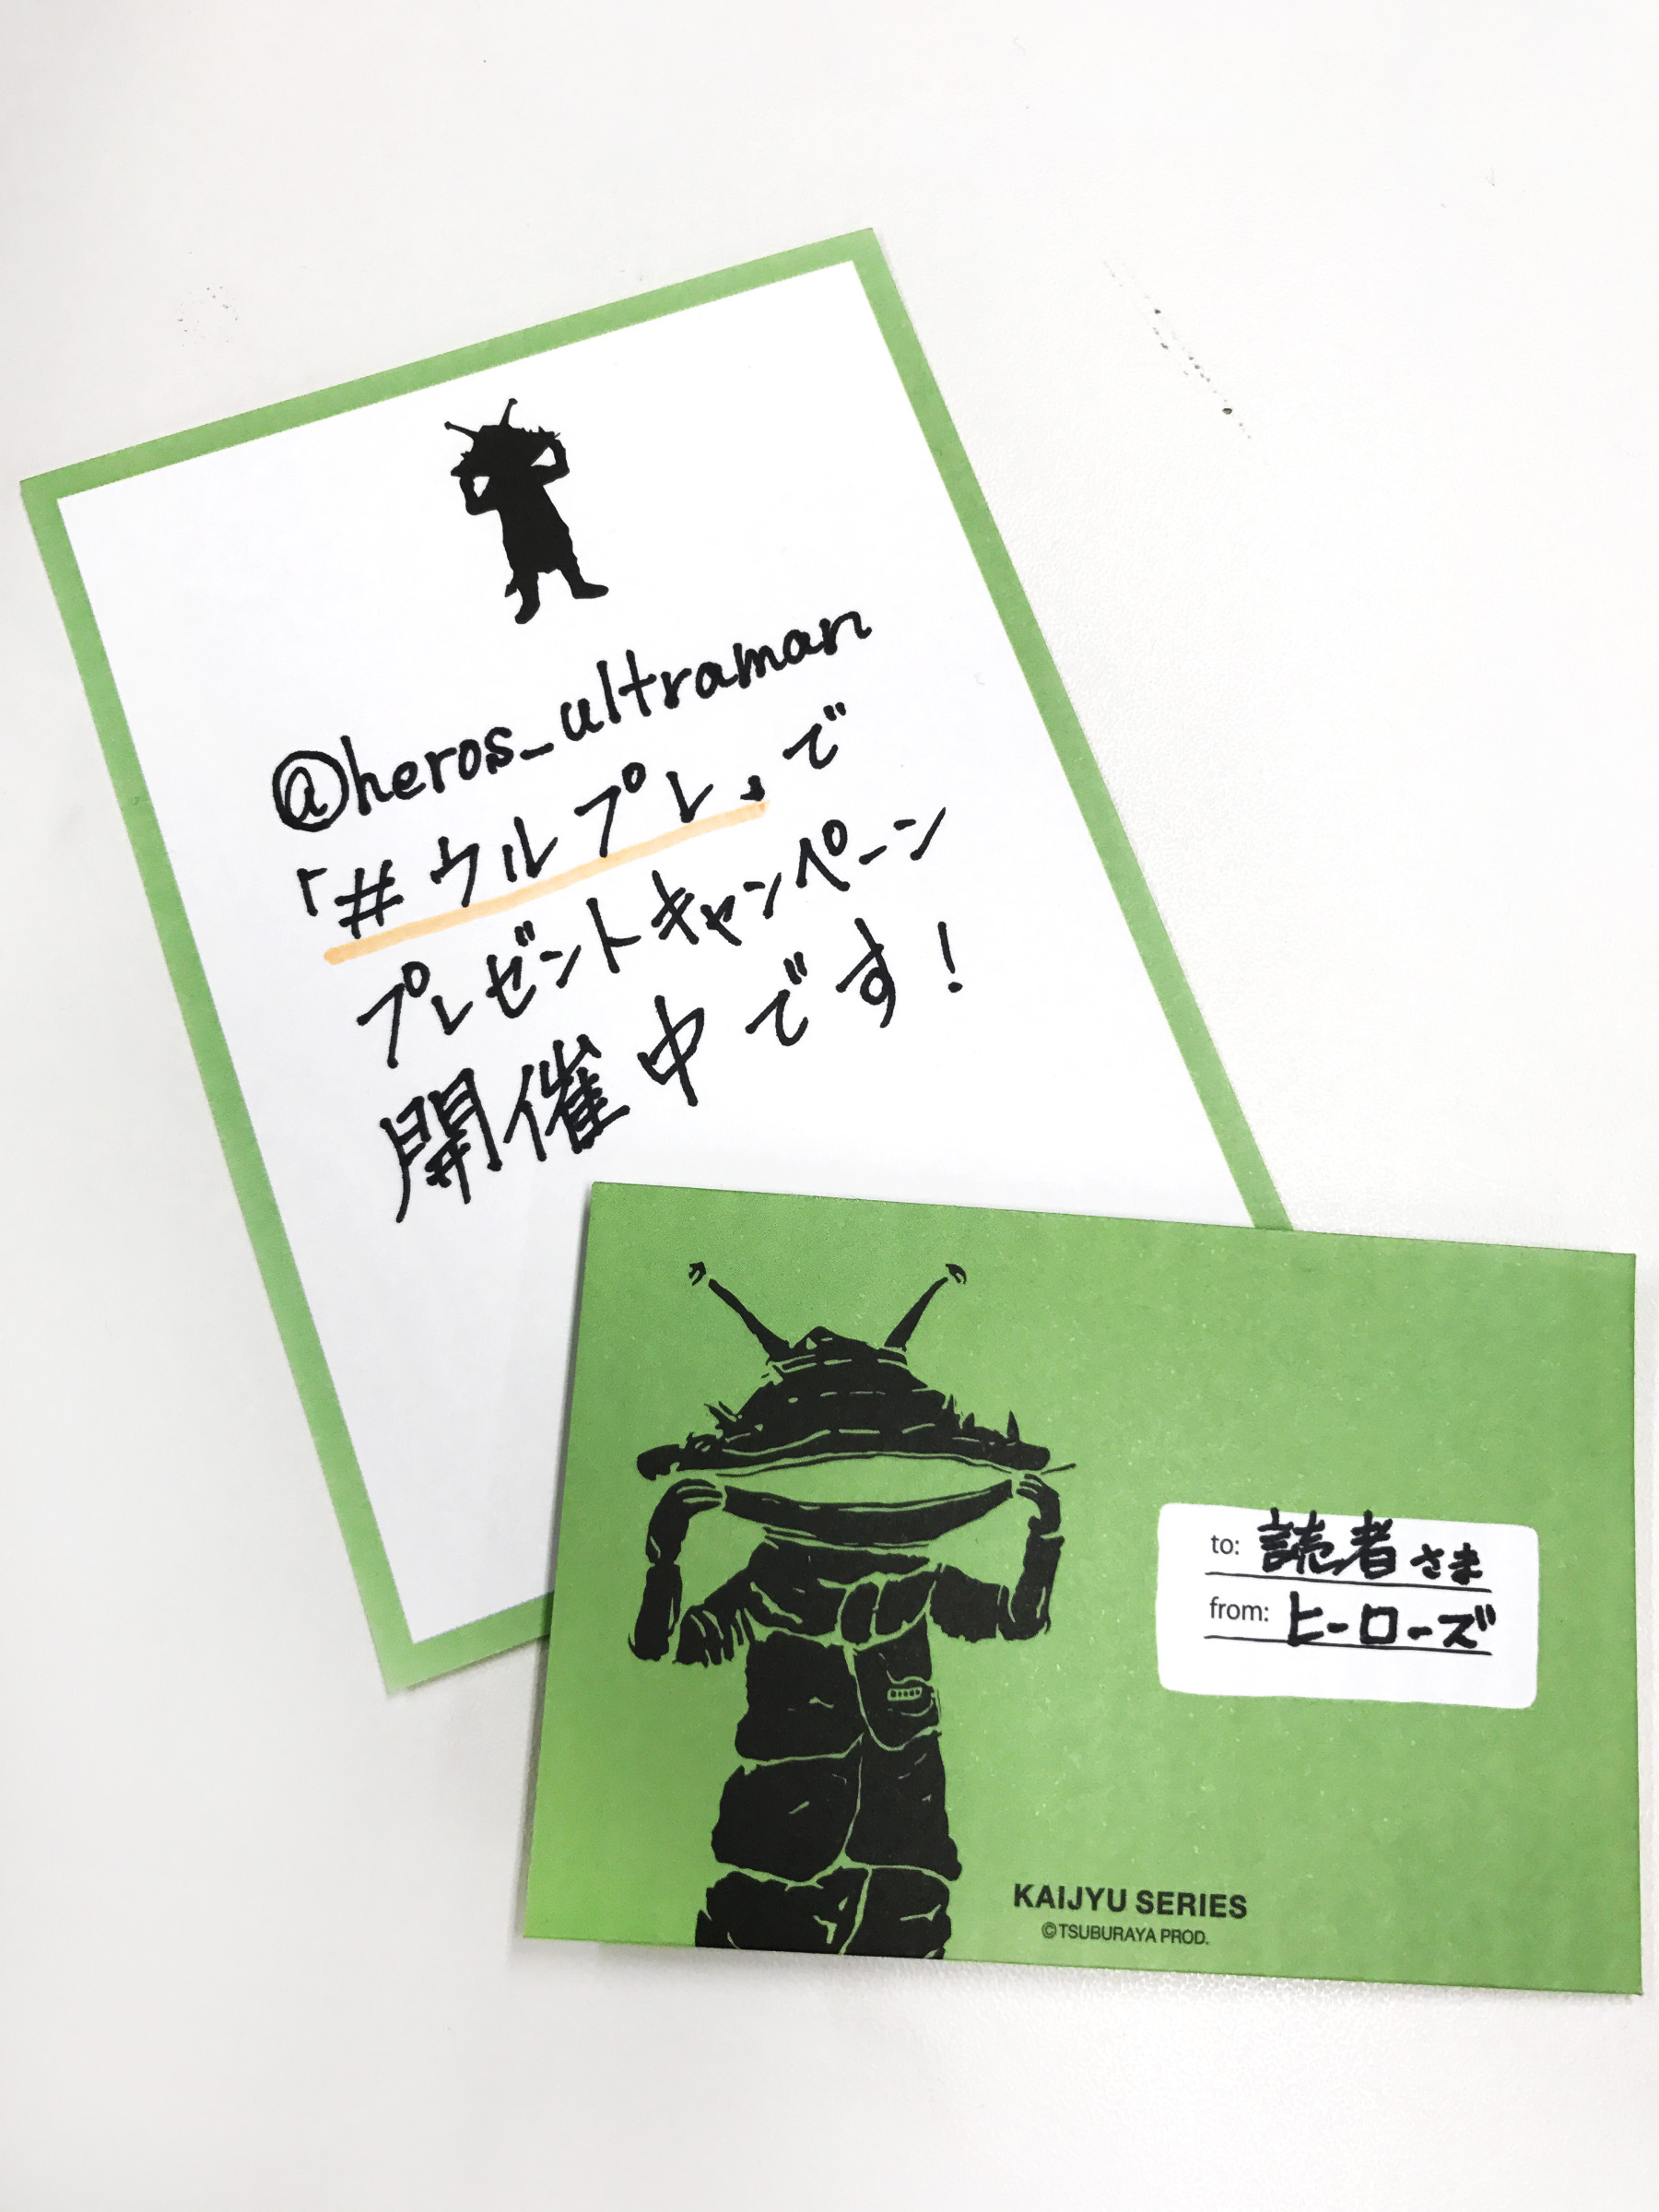 @heros_ultraman
「#ウルプレ」で
プレゼントキャンペーン
開催中です!
to: 読者さま
from: ヒーローズ
KAIJYU SERIES
©TSUBURAYA PROD.